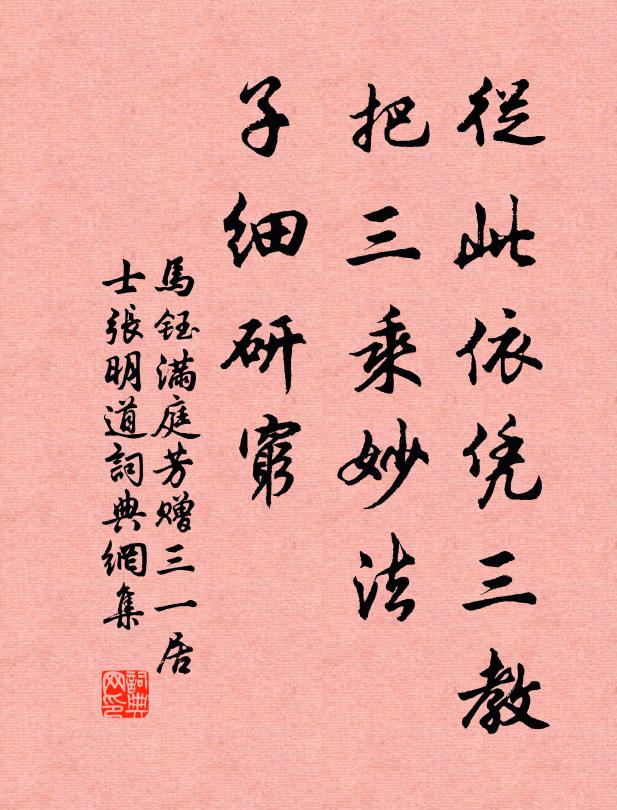 從此依凭三教
把三乘妙法
子細研窮
馬鈺滿庭芳赠三一居
士張明道詞典網集
詞典
网印